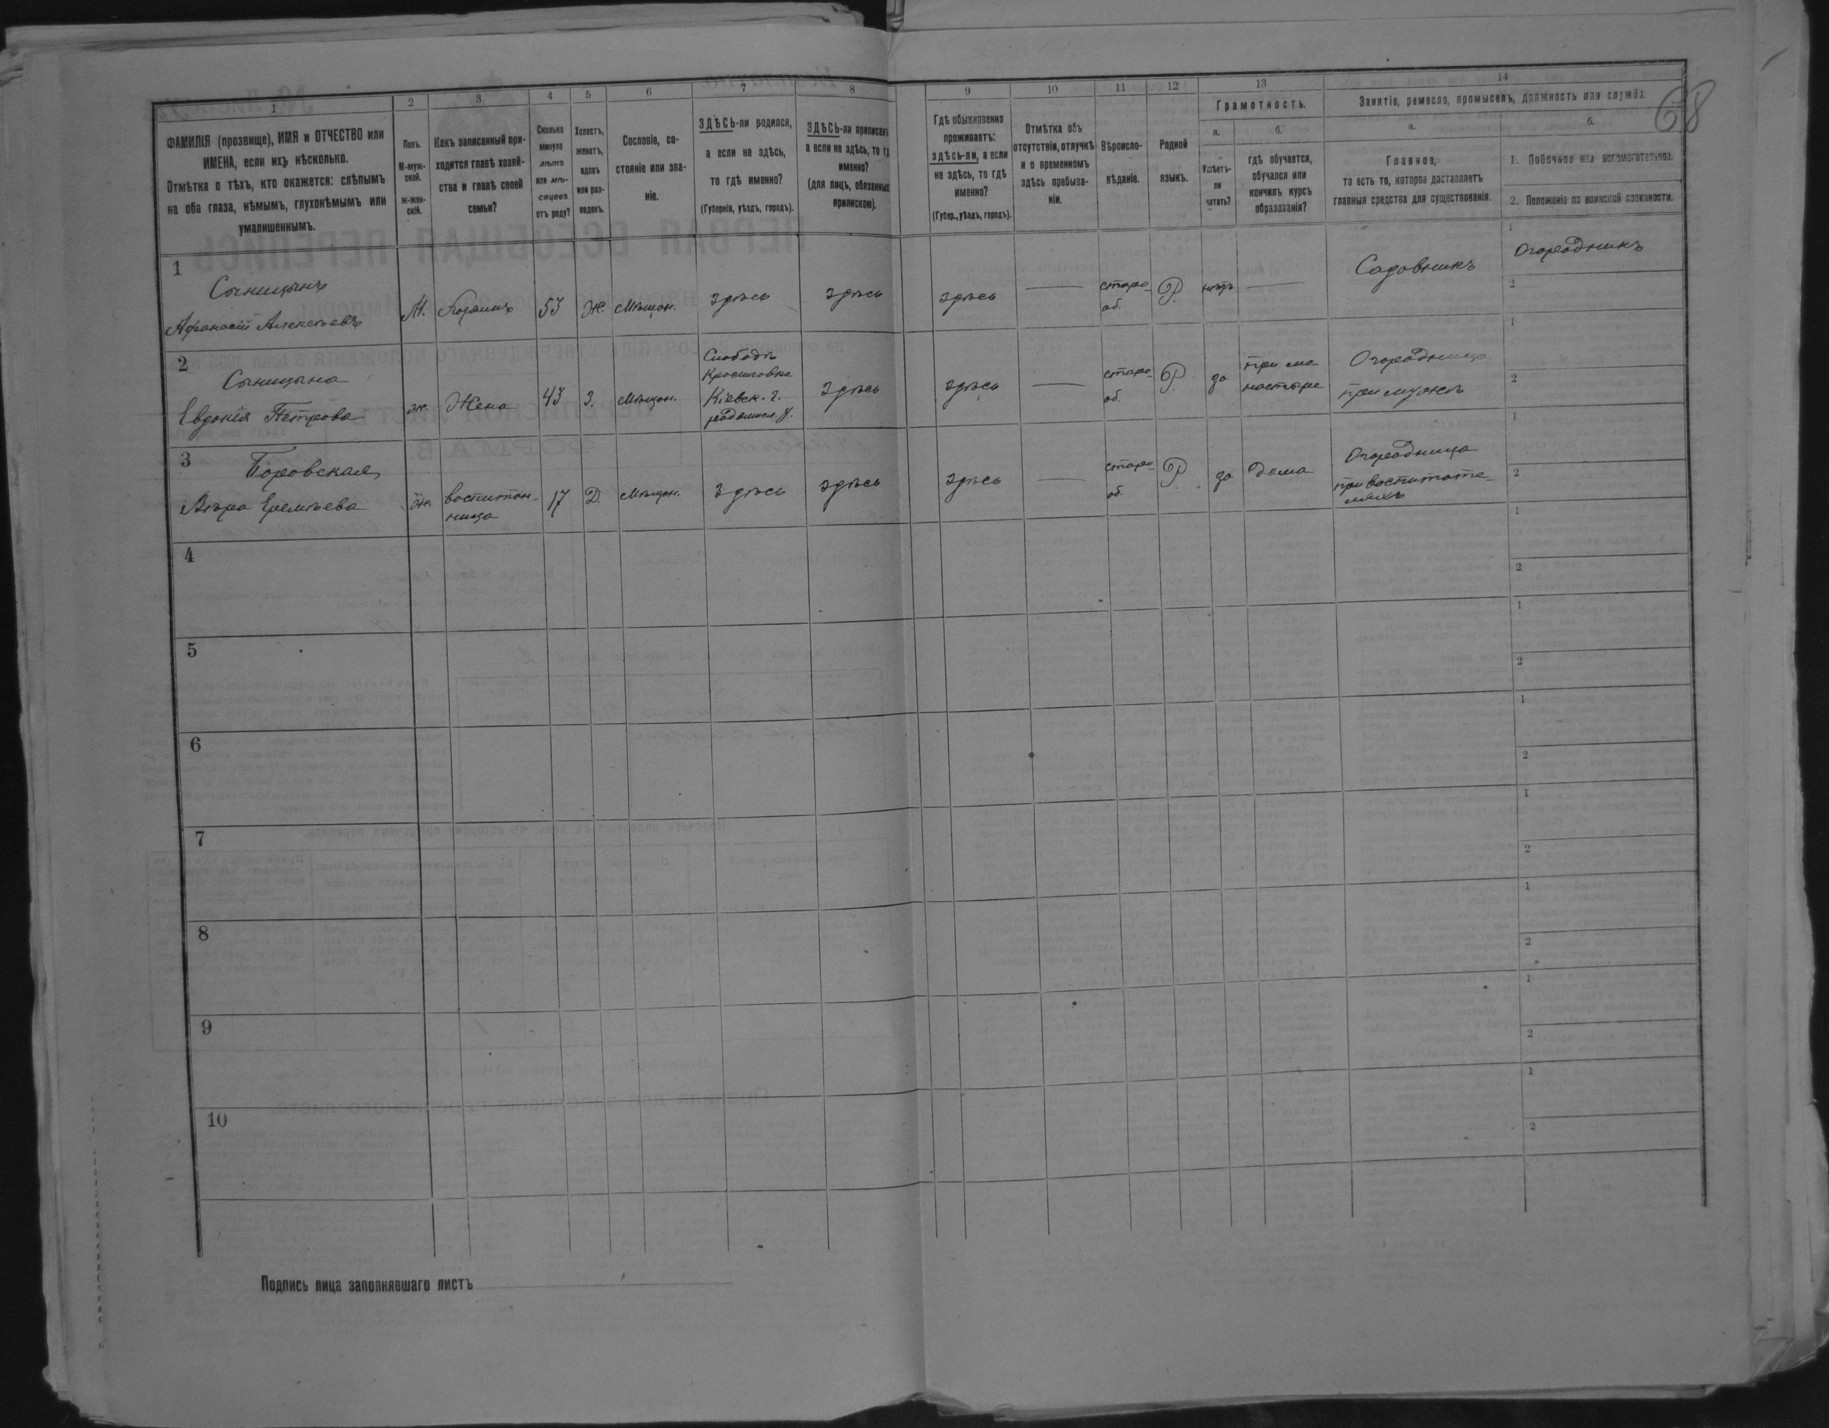 68
1
ФАМИЛІЯ (прозвище), ИМЯ и ОТЧЕСТВО или
ИМЕНА, если ихъ нѣсколько.
Отмѣтка о тѣхъ, кто окажется: слѣпымъ
на оба глаза, нѣмымъ, глухонѣмымъ или
умалишеннымъ.
2
Полъ.
М-муж-
ской.
ж-жен-
скій.
3
Какъ записанный при-
ходится главѣ хозяй-
ства и главѣ своей
семьи?
4
Сколько
минуло
лѣтъ
или мѣ-
сяцевъ
отъ роду?
5
Холостъ,
женатъ,
вдовъ
или раз-
веденъ.
6
Сословіе, со-
стояніе или зва-
ніе.
7
ЗДѢСЬ-ли родился,
а если не здѣсь,
то гдѣ именно?
(Губернія, уѣздъ, городъ).
8
ЗДѢСЬ-ли приписанъ
а если не здѣсь, то гд
именно?
(для лицъ, обязанных
припискою).
9
Гдѣ обыкновенно
проживаетъ:
здѣсь-ли, а если
не здѣсь, то гдѣ
именно?
(Губер., уѣздъ, городъ).
10
Отмѣтка объ
отсутствіи, отлучкѣ
и о временномъ
здѣсь пребыва-
ніи.
11
Вѣроиспо-
вѣданіе.
12
Родной
языкъ.
13
Грамотность.
а.
Умѣетъ-
ли
читать?
б.
гдѣ обучается,
обучался или
кончилъ курсъ
образованія?
14
Занятіе, ремесло, промыселъ, должность или служба.
а.
Главное,
то есть то, которое доставляетъ
главныя средства для существованія.
б.
1. Побочное или вспомогательное.
2. Положеніе по воинской повинности.
1
Сыницынъ
Афанасій Алексѣевъ
М.
Хозяинъ
53
Ж.
Мѣщан.
здѣсь
здѣсь
здѣсь
старо-
об.
Р.
нѣтъ
Садовникъ
1
Огородникъ
2
2
Сыницына
Евдокія Петрова
ж.
Жена
43
З.
Мѣщан.
Слобода
Кіевск. г.
радомысл. у.
здѣсь
здѣсь
старо-
об.
Р
да
при мо
настыре
Огородница
при мужѣ
1
2
3
Боровская
Вѣра Еремѣева
ж.
воспитан-
ница
17
Д.
мѣщан.
здѣсь
здѣсь
здѣсь
старо-
об.
Р
да
дома
Огородница
при воспитате-
ляхъ
1
2
4
1
2
5
1
2
6
1
2
7
1
2
8
1
2
9
1
2
10
1
2
Подпись лица заполнявшаго листъ